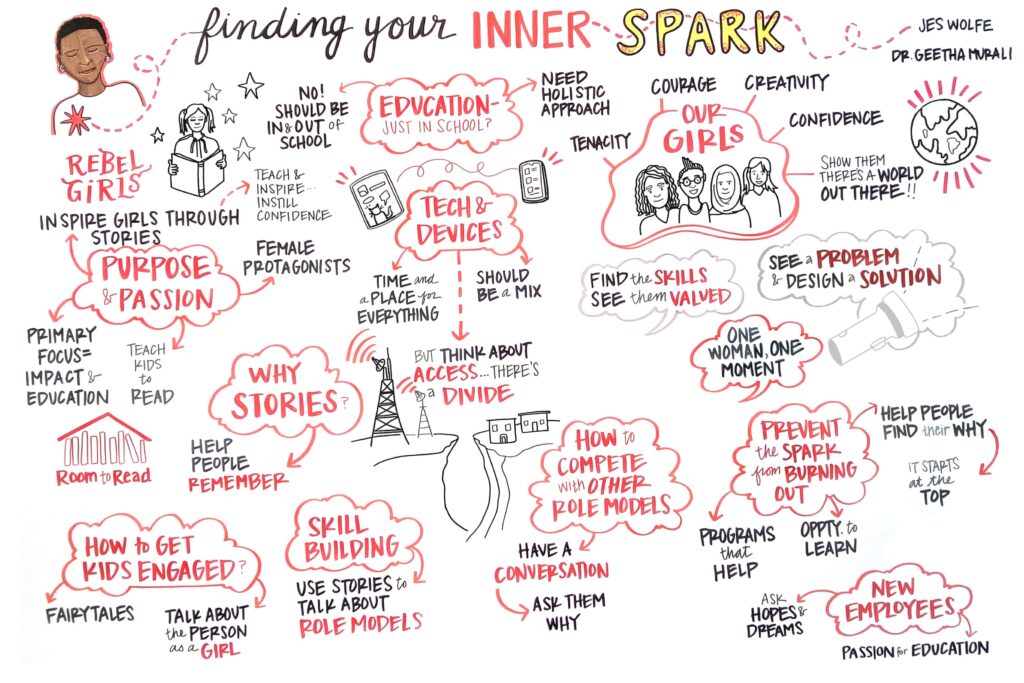 finding your INNER SPARK
JES WOLFE
DR. GEETHA MURALI
REBEL
GIRLS
INSPIRE GIRLS THROUGH
STORIES
TEACH &
INSPIRE...
INSTILL
CONFIDENCE
PURPOSE
& PASSION
FEMALE
PROTAGONISTS
PRIMARY
FOCUS=
IMPACT &
EDUCATION
TEACH
KIDS
to
READ
Room to Read
NO!
SHOULD BE
IN & OUT of
SCHOOL
EDUCATION-
JUST IN SCHOOL?
NEED
HOLISTIC
APPROACH
TECH &
DEVICES
TIME and
a PLACE for
EVERYTHING
SHOULD
BE a MIX
BUT THINK ABOUT
ACCESS...THERE'S
a DIVIDE
WHY
STORIES?
HELP
PEOPLE
REMEMBER
OUR
GIRLS
TENACITY
COURAGE
CREATIVITY
CONFIDENCE
SHOW THEM
THERE'S a WORLD
OUT THERE!!
FIND the SKILLS
SEE them VALUED
SEE a PROBLEM
& DESIGN a SOLUTION
ONE
WOMAN, ONE
MOMENT
HOW to GET
KIDS ENGAGED?
FAIRYTALES
TALK ABOUT
the PERSON
as a GIRL
SKILL
BUILDING
USE STORIES to
TALK ABOUT
ROLE MODELS
HOW to
COMPETE
with OTHER
ROLE MODELS
HAVE A
CONVERSATION
ASK THEM
WHY
PREVENT
the SPARK
from BURNING
OUT
HELP PEOPLE
FIND their WHY
IT STARTS
at the
TOP
PROGRAMS
that
HELP
OPPTY. to
LEARN
NEW
EMPLOYEES
ASK
HOPES &
DREAMS
PASSION for EDUCATION